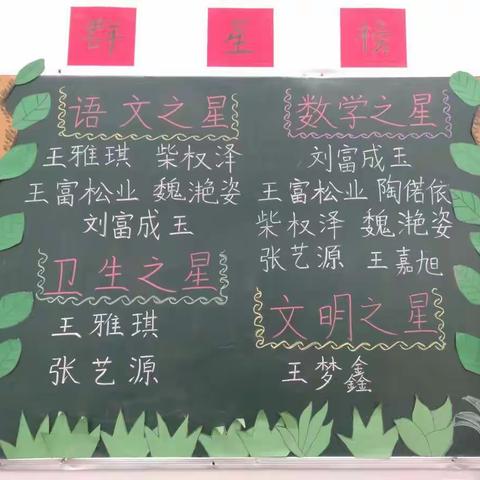 群 星 榜
语文之星
王雅琪 柴权泽
王富松业 魏滟姿
刘富成玉
卫生之星
王雅琪
张艺源
数学之星
刘富成玉
王富松业 陶偌依
柴权泽 魏滟姿
张艺源 王嘉旭
文明之星
王梦鑫